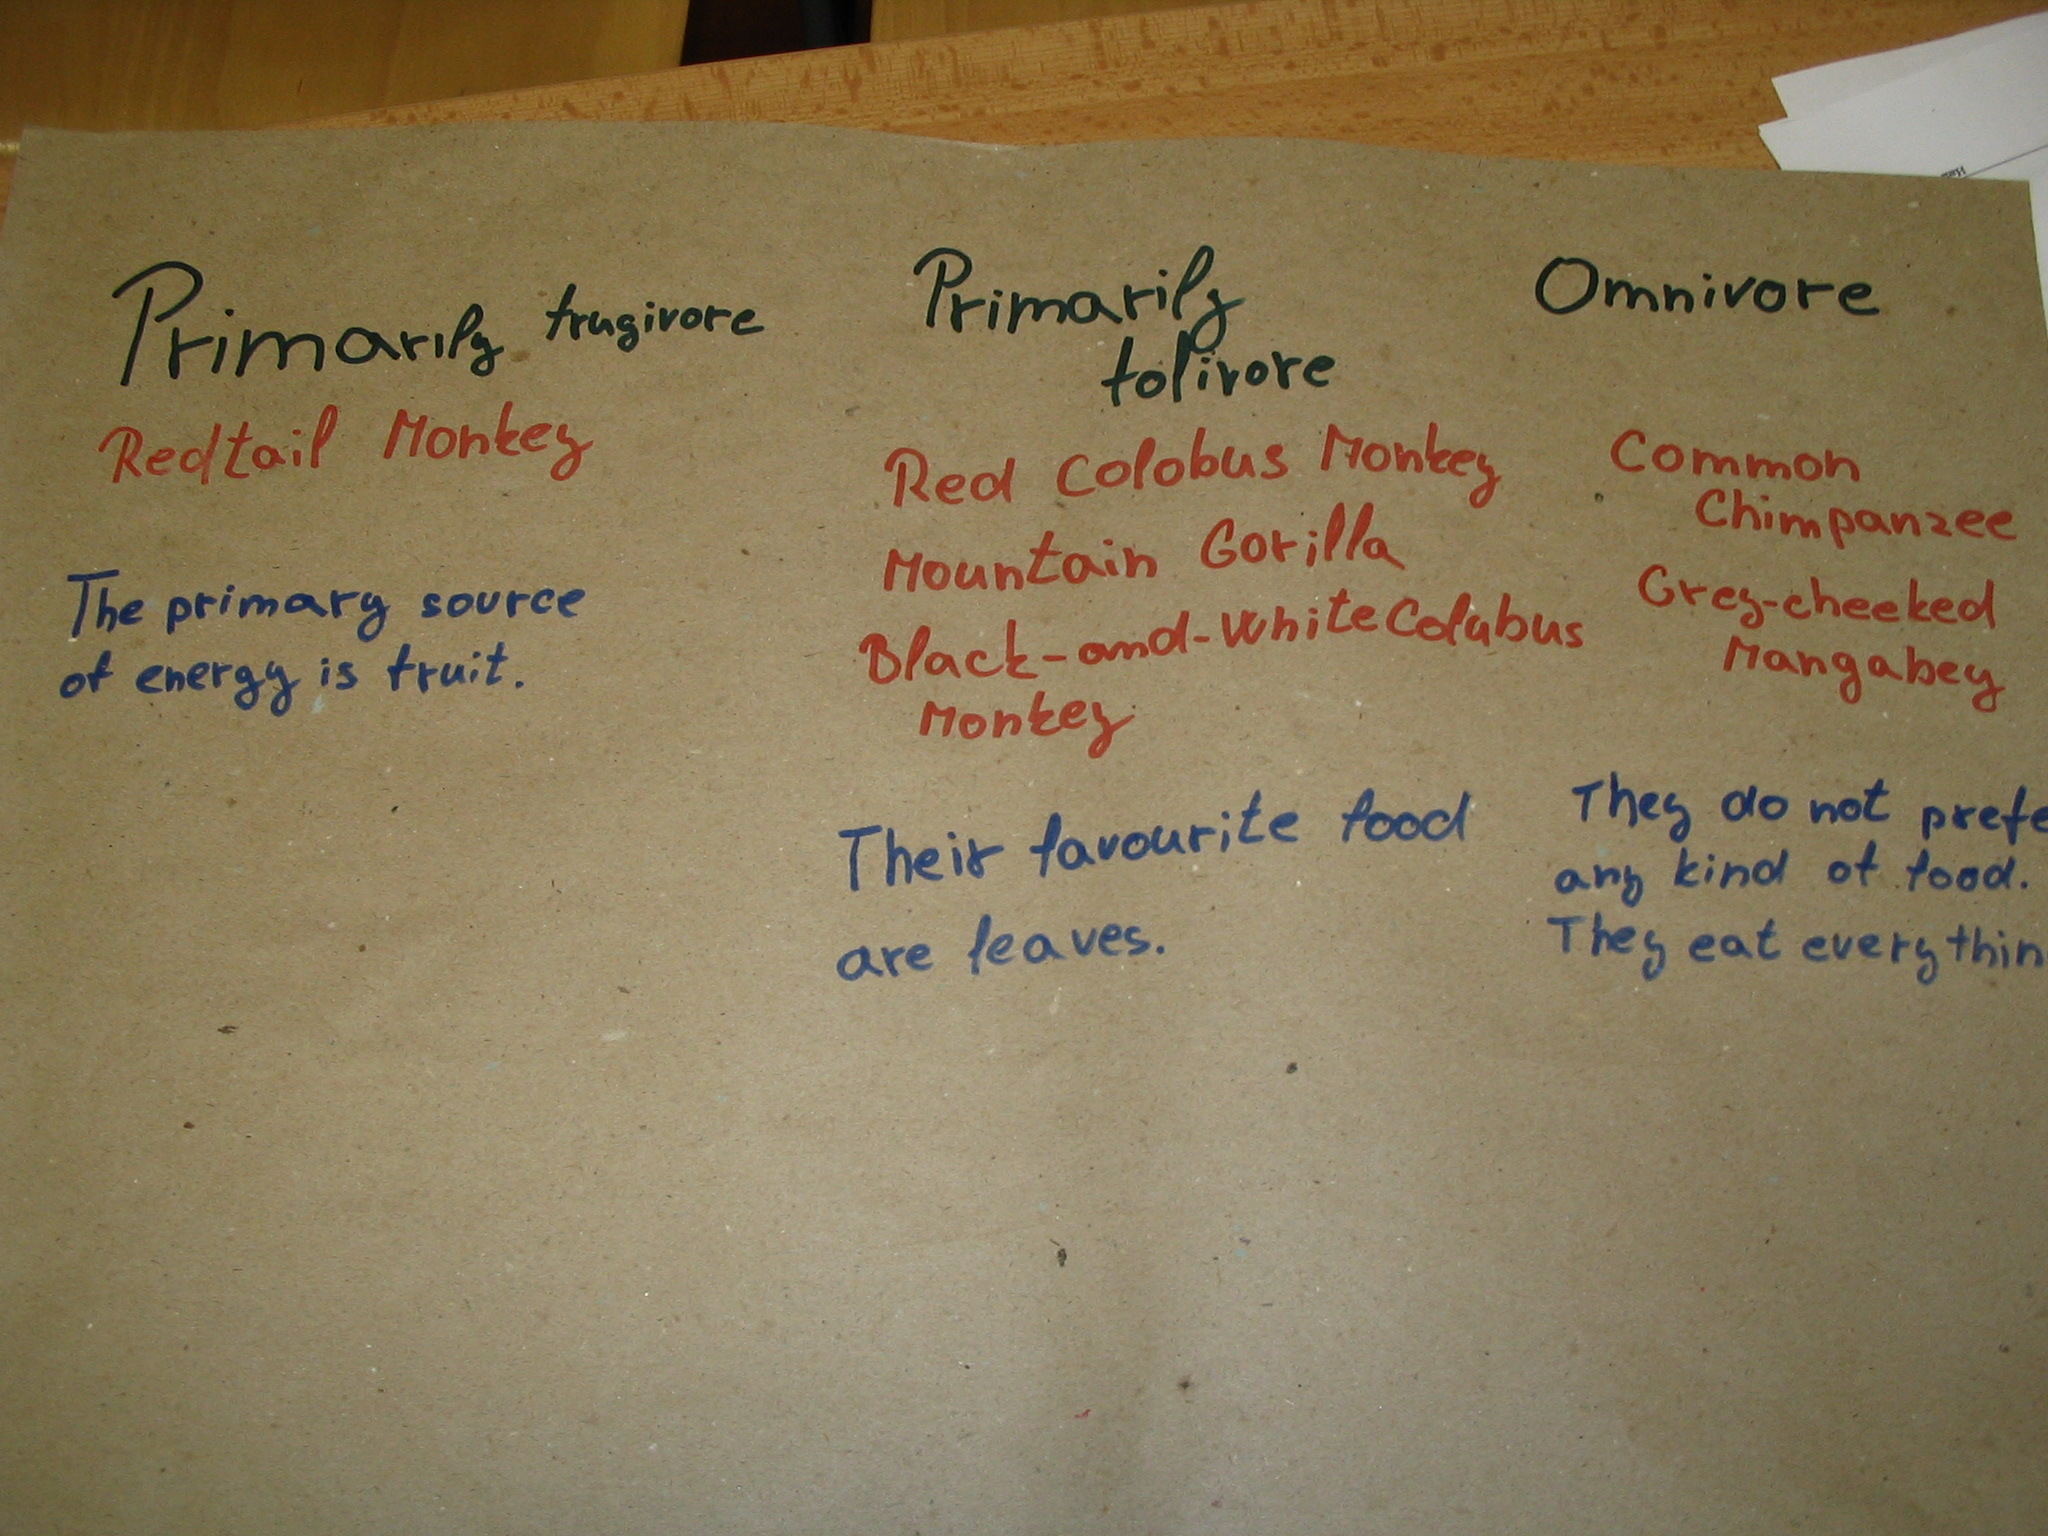 Primarily frugivore
Redtail Monkey
The primary source
of energy is fruit.
Primarily
folivore
Red Colobus Monkey
Mountain Gorilla
Black-and-White Colubus
Monkey
Their favourite food
are leaves.
Omnivore
Common
Chimpanzee
Grey-cheeked
Mangabey
They do not prefe
any kind of food.
They eat everythin